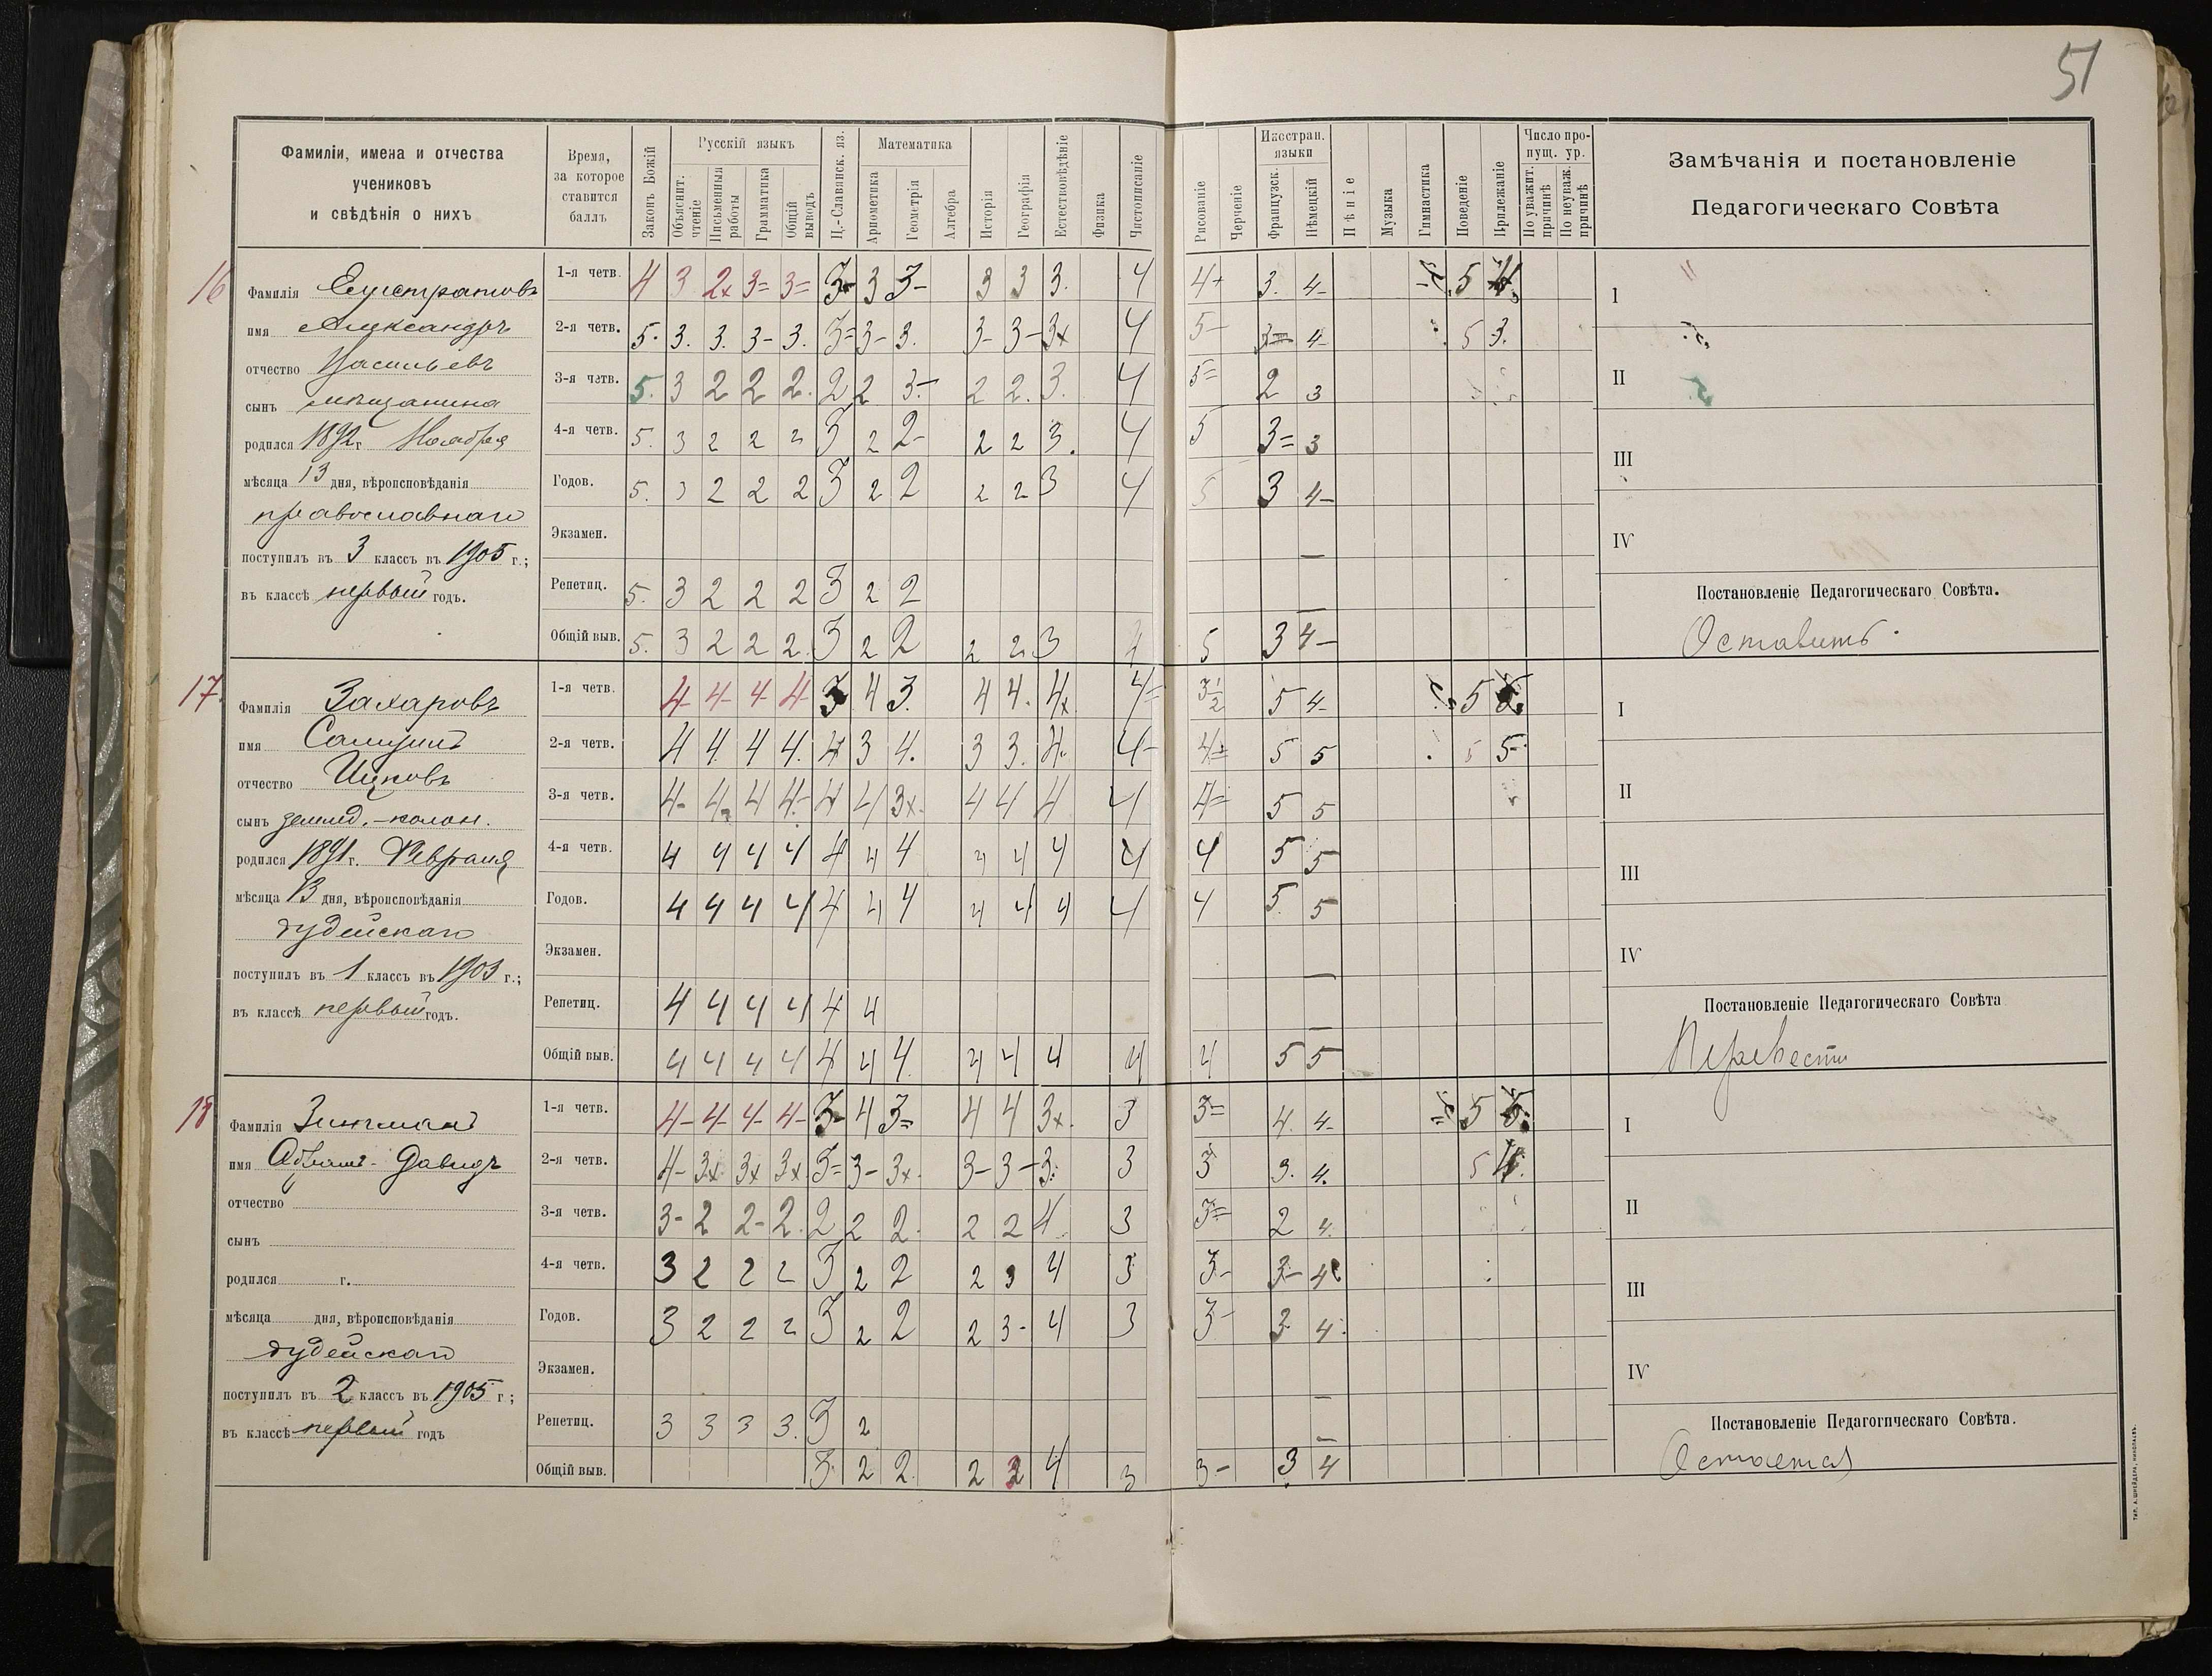 51
Фамиліи, имена и отчества
учениковъ
и свѣдѣнія о нихъ
Время,
за которое
ставится
баллъ
Законъ Божій
Русскій языкъ
Объяснит. чтеніе
Письменныя работы
Грамматика
Общій выводъ
Ц.-Славянск. яз.
Математика
Ариѳметика
Геометрія
Алгебра
Исторія
Географія
Естествовѣдѣніе
Физика
Чистописаніе
Рисованіе
Черченіе
Иностран. языки
Французск.
Нѣмецкій
Пѣніе
Музыка
Гимнастика
Поведеніе
Прилежаніе
Число пропущ. ур.
По уважит. причинѣ
По неуваж. причинѣ
Замѣчанія и постановленіе
Педагогическаго Совѣта
16
Фамилія Елистратовъ
имя Александръ
отчество Васильевъ
сынъ мѣщанина
родился 1892 г. Ноября
мѣсяца 13 дня, вѣроисповѣданія
православнаго
поступилъ въ 3 классъ въ 1905 г.;
въ классѣ первый годъ.
1-я четв. 4 3 2x 3= 3= 3- 3 3- 3 3 3. 4 4+ 3. 4- 5 4
2-я четв. 5. 3. 3. 3- 3. 3= 3- 3. 3- 3- 3x 4 5- 3= 4- 5 3.
3-я четв. 5. 3 2 2 2. 2 2 3- 2 2. 3. 4 5= 2 3
4-я четв. 5. 3 2 2 2 3 2 2- 2 2 3. 4 5 3= 3
Годов. 5. 3 2 2 2 3 2 2 2 2 3 4 5 3 4-
Экзамен. —
Репетиц. 5. 3 2 2 2 3 2 2 —
Общій выв. 5. 3 2 2 2. 3 2 2 2 2 3 4 5 3 4-
I
II
III
IV
Постановленіе Педагогическаго Совѣта.
Оставить.
17.
Фамилія Захаровъ
имя Самуилъ
отчество Ицковъ
сынъ землед.-колон.
родился 1891 г. Февраля
мѣсяца 13 дня, вѣроисповѣданія
іудейскаго
поступилъ въ 1 классъ въ 1903 г.;
въ классѣ первый годъ.
1-я четв. 4- 4- 4 4 3 4 3. 4 4. 4x 4= 3½ 5 4- 5 5
2-я четв. 4 4. 4 4. 4 3 4. 3 3. 4. 4- 4= 5 5 5 5-
3-я четв. 4- 4- 4 4- 4 4 3x 4 4 4 4 4= 5 5
4-я четв. 4 4 4 4 4 4 4 4 4 4 4 4 5 5
Годов. 4 4 4 4 4 4 4 4 4 4 4 4 5 5
Экзамен. —
Репетиц. 4 4 4 4 4 4 —
Общій выв. 4 4 4 4 4 4 4. 4 4 4 4 4 5 5
I
II
III
IV
Постановленіе Педагогическаго Совѣта
Перевести
18
Фамилія
имя Абрамъ-Давидъ
отчество
сынъ
родился г.
мѣсяца дня, вѣроисповѣданія
іудейскаго
поступилъ въ 2 классъ въ 1905 г;
въ классѣ первый годъ
1-я четв. 4- 4- 4- 4- 3- 4 3= 4 4 3x. 3 3= 4. 4- 5 5
2-я четв. 4- 3x 3x 3x 3= 3- 3x. 3- 3- 3. 3 3 3. 4. 5 4
3-я четв. 3- 2 2- 2. 2 2 2. 2 2 4 3 3= 2 4.
4-я четв. 3 2 2 2 3 2 2 2 3 4 3 3- 3- 4
Годов. 3 2 2 2 3 2 2 2 3- 4 3 3- 3 4.
Экзамен. —
Репетиц. 3 3 3 3. 3 2 —
Общій выв. 3 2 2. 2 4 3 3- 3 4
I
II
III
IV
Постановленіе Педагогическаго Совѣта.
Остается
ТИП. А. ШНЕЙДЕРА, НИКОЛАЕВЪ.